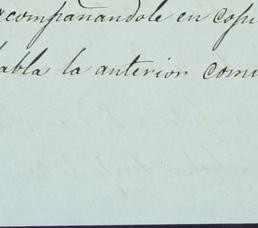 acompañandole en copi
abla la anterior comu